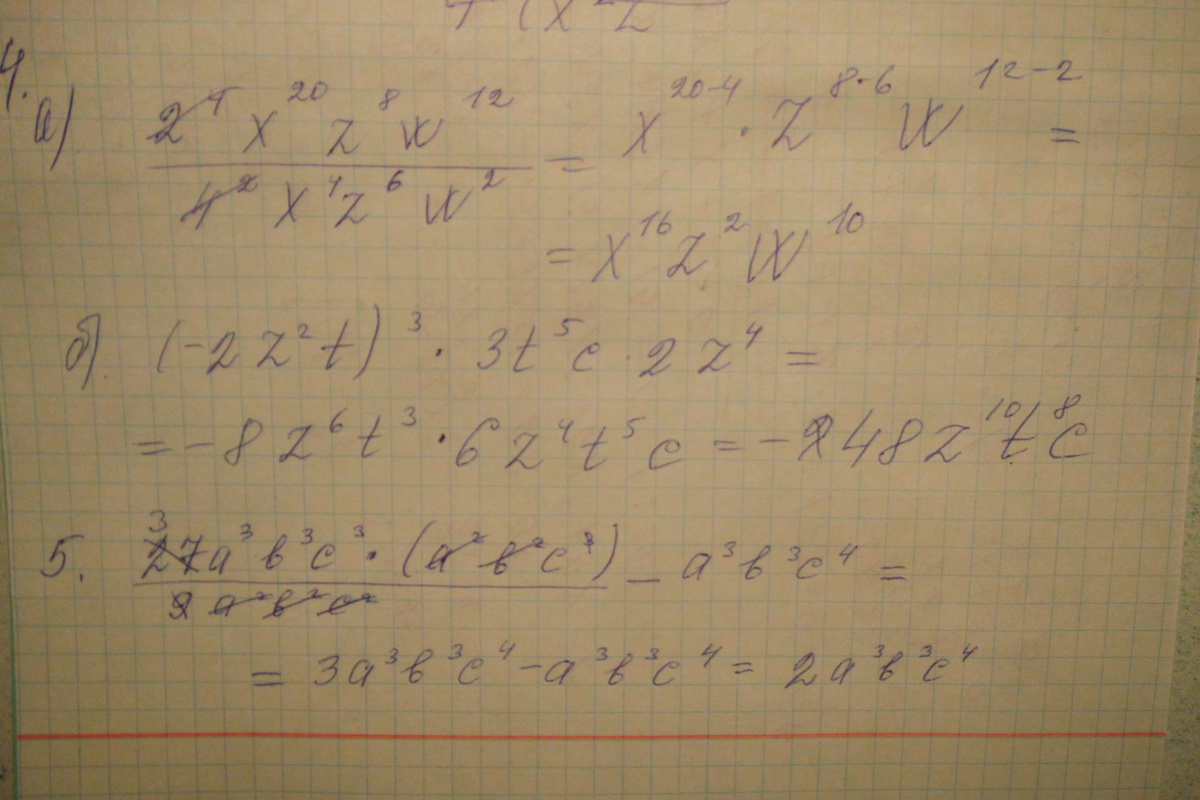 4.
а) 2⁴ x²⁰ z⁸ w¹² / 4² x⁴ z⁶ w² = x²⁰⁻⁴ · z⁸⁻⁶ w¹²⁻² =
= x¹⁶ z² w¹⁰
б) (-2z²t)³ · 3t⁵c · 2z⁴ =
= -8z⁶t³ · 6z⁴t⁵c = -48z¹⁰t⁸c
5. 27a³b³c³ · (a²b²c³) / 9a²b²c² - a³b³c⁴ =
= 3a³b³c⁴ - a³b³c⁴ = 2a³b³c⁴